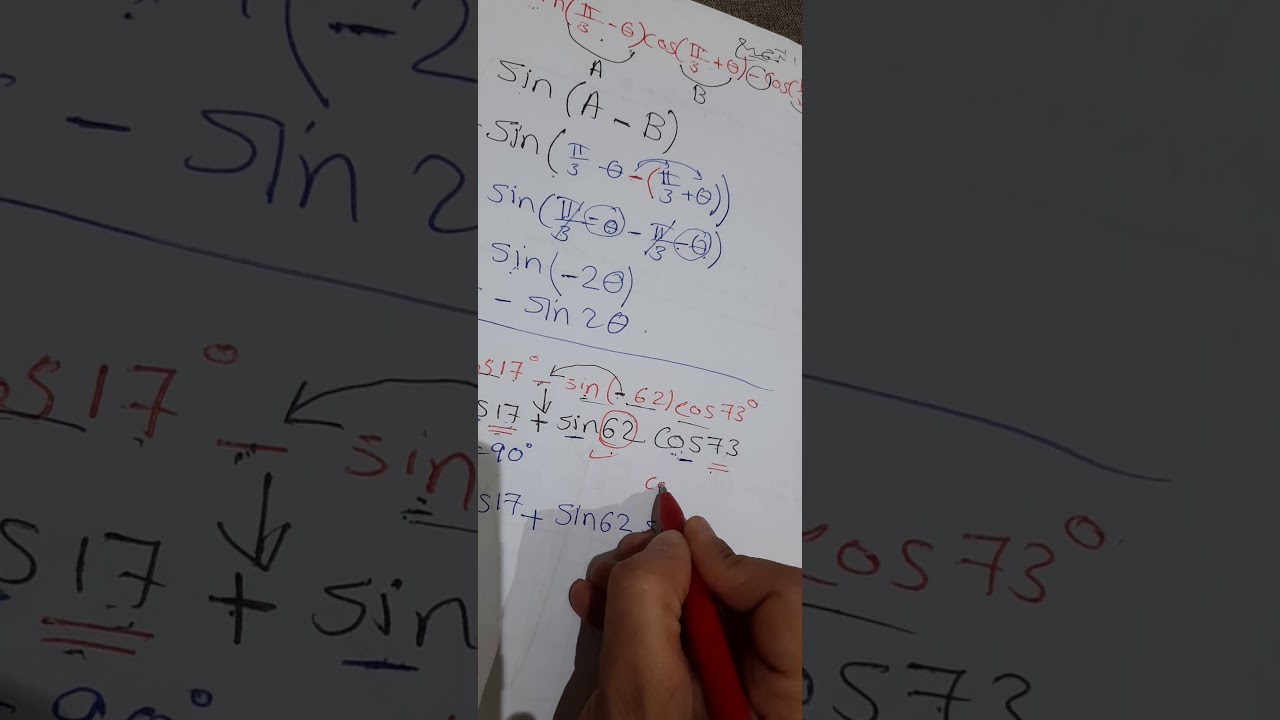 (π/3 - θ) cos(π/3 + θ) -
A B
sin (A - B)
sin (π/3 - θ - (π/3 + θ))
sin (π/3 - θ - π/3 - θ)
sin (-2θ)
- sin 2θ .
s17° - sin(-62) cos73°
s17 + sin62 cos73
= 90°
s17 + sin62